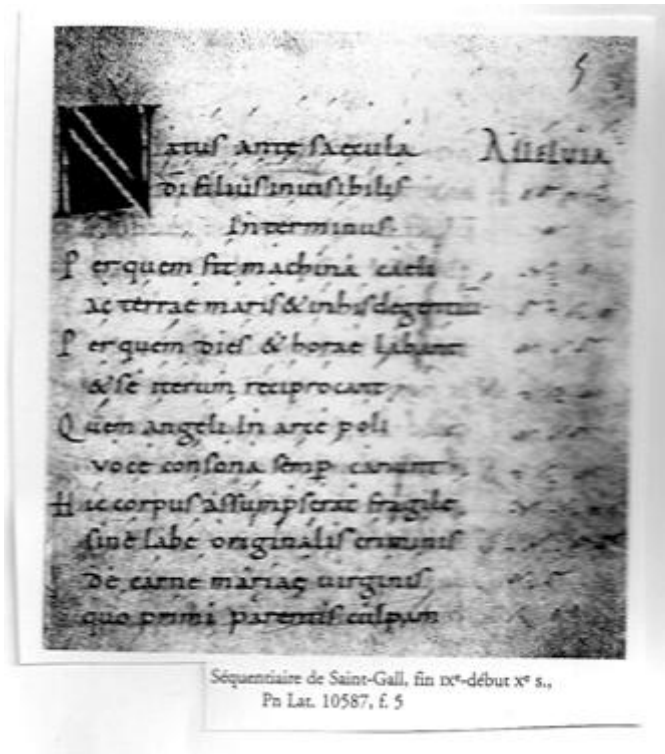 5
Natus ante saecula Alleluia
di filius inuisibilis
Interminus.
Per quem fit machina caeli
ac terrae maris & in his degentiu
Per quem dies & horae labant
& se iterum reciprocant
Quem angeli In arce poli
voce consona semp canunt
Hic corpus assumpserat fragile
sine labe originalis criminis
De carne mariae uirginis
quo primi parentis culpam
Séquentiaire de Saint-Gall, fin IXᵉ-début Xᵉ s.,
Pn Lat. 10587, f. 5